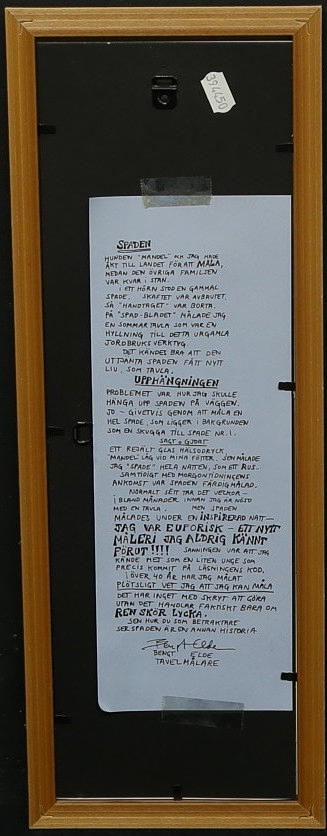 394450
SPADEN
HUNDEN "MANDEL" OCH JAG HADE
ÅKT TILL LANDET FÖR ATT MÅLA,
MEDAN DEN ÖVRIGA FAMILJEN
VAR KVAR I STAN.
I ETT HÖRN STOD EN GAMMAL
SPADE. SKAFTET VAR AVBRUTET,
SÅ "HANDTAGET" VAR BORTA.
PÅ "SPAD-BLADET" MÅLADE JAG
EN SOMMARTAVLA SOM VAR EN
HYLLNING TILL DETTA URGAMLA
JORDBRUKSVERKTYG.
DET KÄNDES BRA ATT DEN
UTTJÄNTA SPADEN FÅTT NYTT
LIV, SOM TAVLA.
UPPHÄNGNINGEN
PROBLEMET VAR HUR JAG SKULLE
HÄNGA UPP SPADEN PÅ VÄGGEN.
JO - GIVETVIS GENOM ATT MÅLA EN
HEL SPADE, SOM LIGGER I BAKGRUNDEN
SOM EN SKUGGA TILL SPADE NR. 1.
SAGT & GJORT
ETT REJÄLT GLAS HÄLSODRYCK
"MANDEL" LÅG VID MINA FÖTTER. SEN MÅLADE
JAG "SPADE" HELA NATTEN, SOM ETT RUS.
SAMTIDIGT MED MORGONTIDNINGENS
ANKOMST VAR SPADEN FÄRDIGMÅLAD.
NORMALT SETT TAR DET VECKOR -
IBLAND MÅNADER INNAN JAG ÄR NÖJD
MED EN TAVLA. MEN SPADEN
MÅLADES UNDER EN INSPIRERAD NATT -
JAG VAR EUFORISK - ETT NYTT
MÅLERI JAG ALDRIG KÄNNT
FÖRUT !!!! SANNINGEN VAR ATT JAG
KÄNDE MEJ SOM EN LITEN UNGE SOM
PRECIS KOMMIT PÅ LÄSNINGENS KOD.
I ÖVER 40 ÅR HAR JAG MÅLAT
PLÖTSLIGT VET JAG ATT JAG KAN MÅLA
DET HAR INGET MED SKRYT ATT GÖRA
UTAN DET HANDLAR FAKTISKT BARA OM
REN SKÖR LYCKA.
SEN HUR DU SOM BETRAKTARE
SER SPADEN ÄR EN ANNAN HISTORIA
Bengt Elde
BENGT ELDE
TAVELMÅLARE